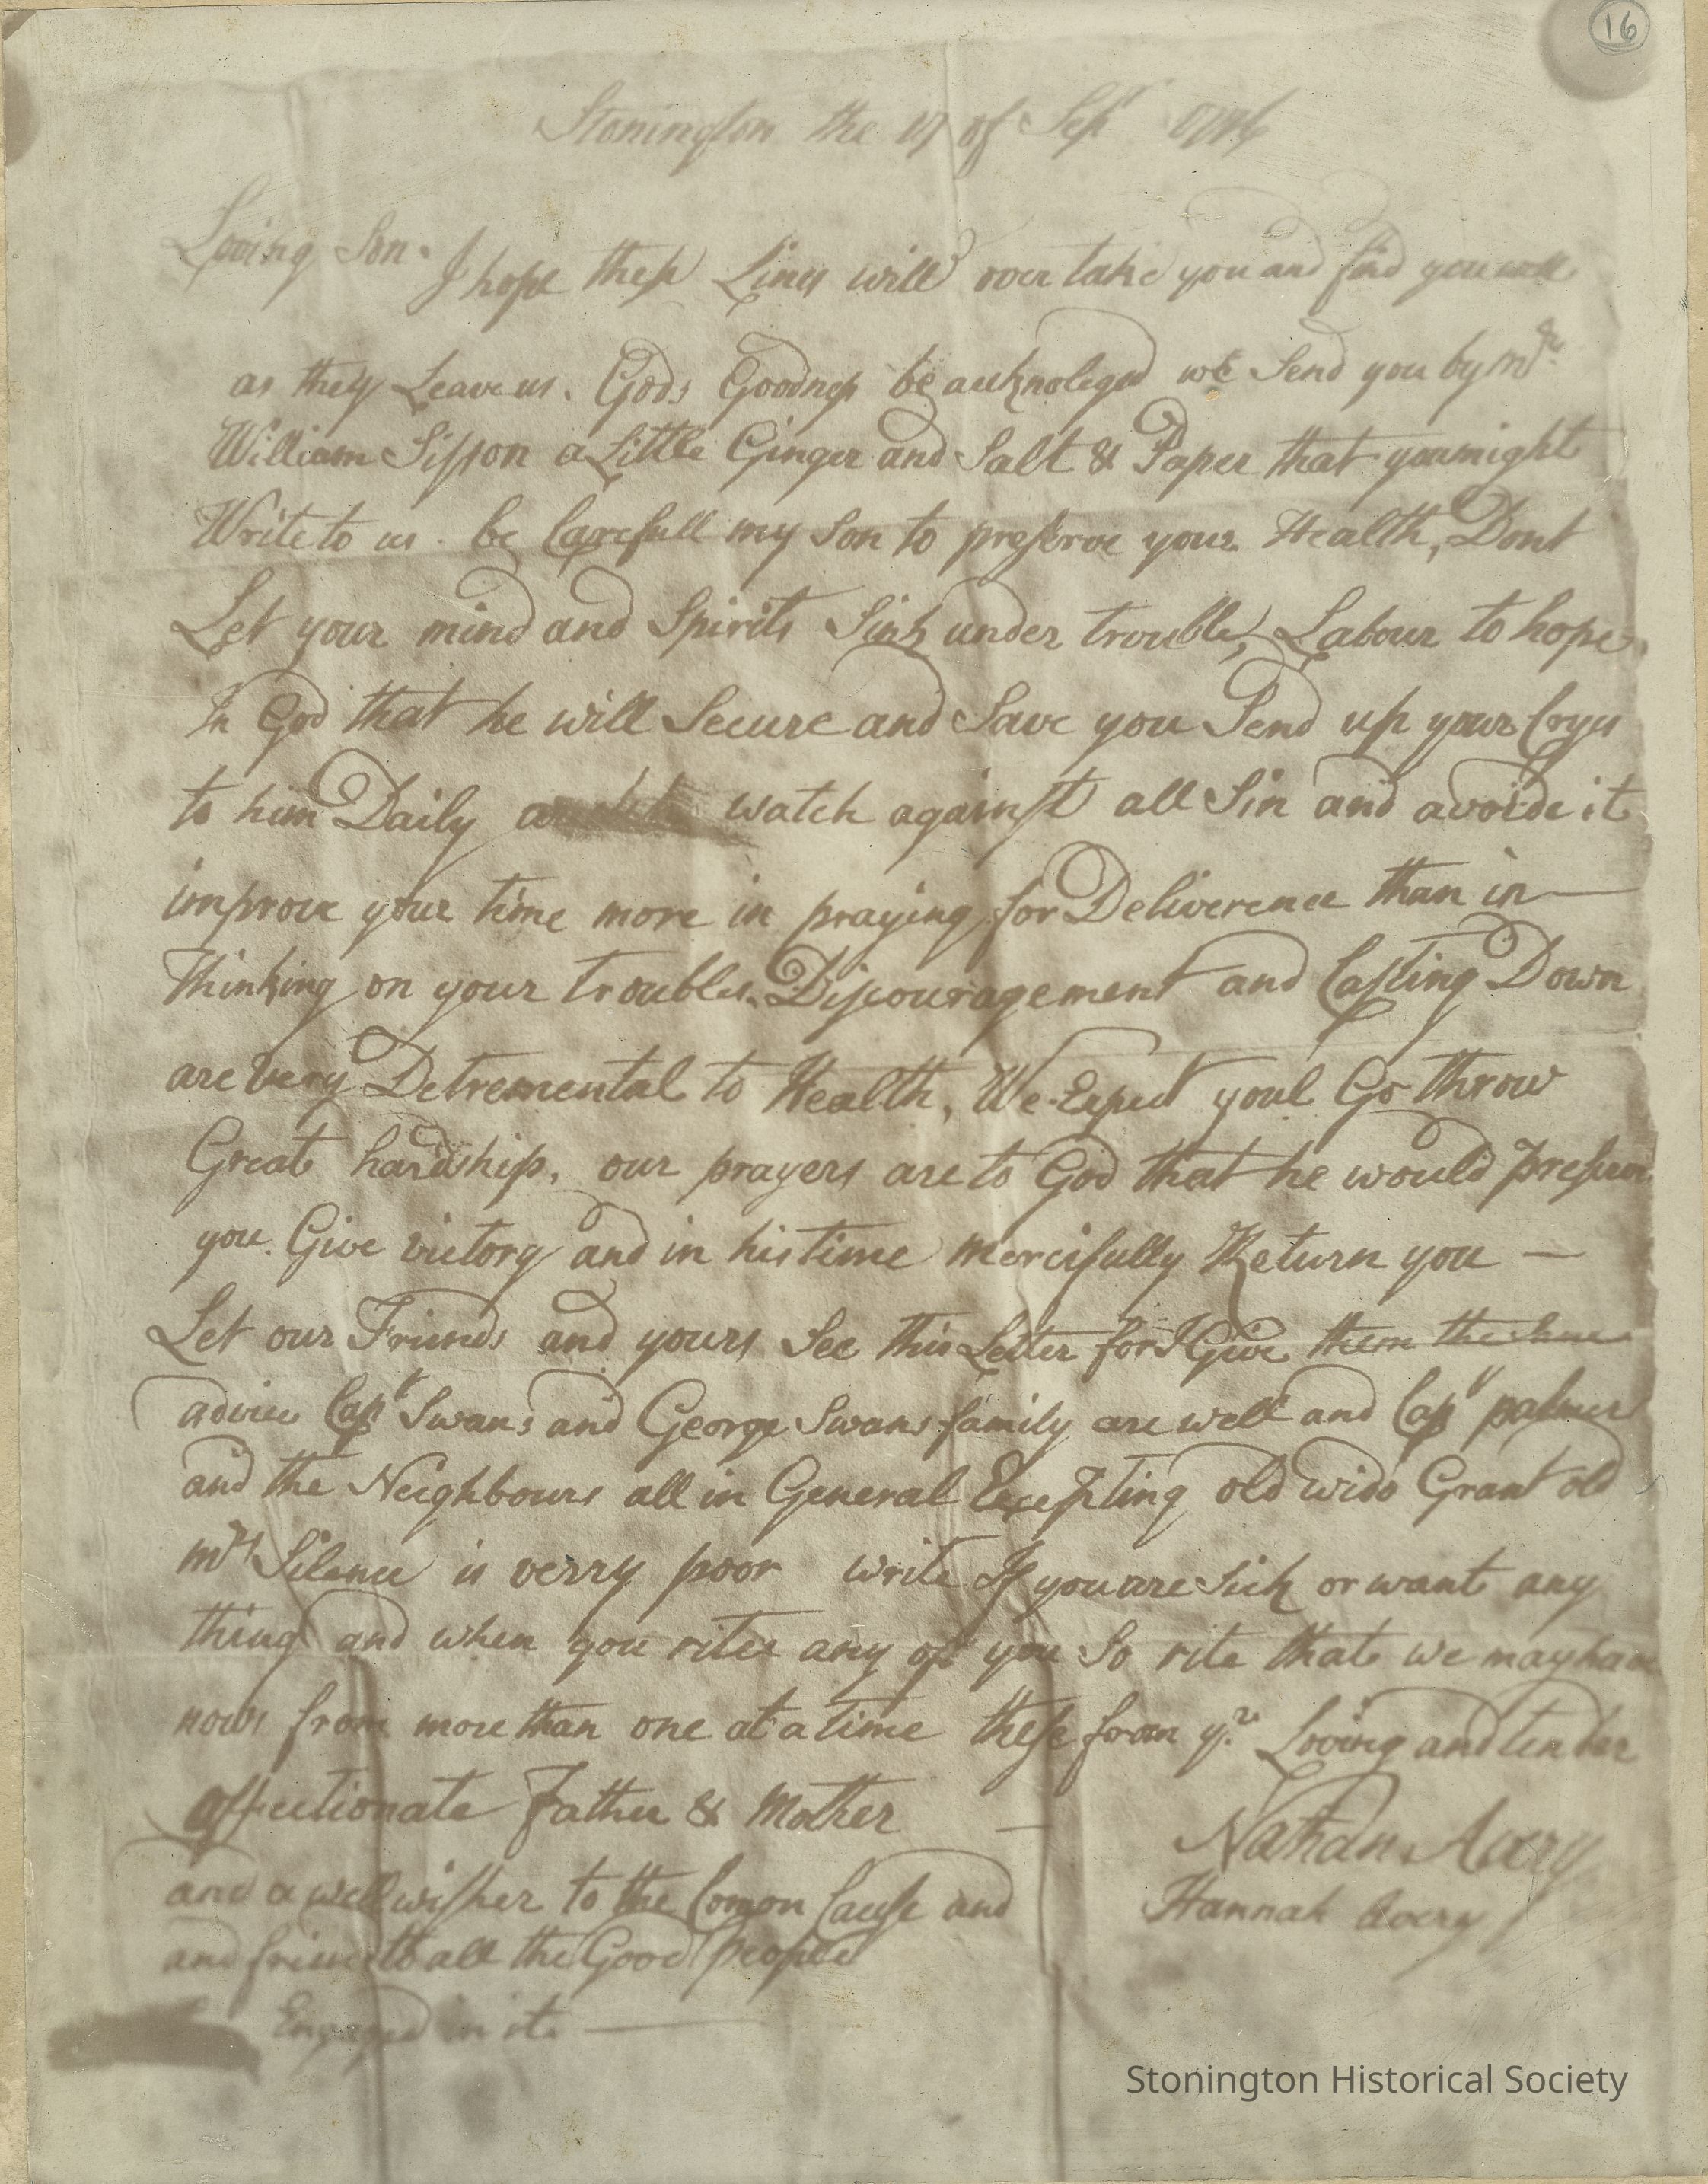 16
Stonington the 17 of Sept 1776
Loving Son. I hope these Lines will over take you and find you well
as they Leave us. Gods Goodness be acknoleged we Send you by Mr
William Sisson a Little Ginger and Salt & Paper that you might
Write to us. be Carefull my Son to preserve your Health, Dont
Let your mind and Spirits Sink under trouble, Labour to hope
In God that he will Secure and Save you Send up your Cryes
to him Daily watch against all Sin and avoide it
improve your time more in praying for Deliverence than in —
Thinking on your troubles. Discouragement and Casting Down
are very Detremental to Health, We Expect youl Go throw
Great hardship, our prayers are to God that he would preserve
you. Give victory and in his time mercifully Return you —
Let our Friends and yours See this Letter for I Give them the Same
advice Capt Swans and George Swans family are well and Capt palmer
and the Neighbours all in General Excepting old wido Grant old
mrs Silence is verry poor write If you are Sick or want any
thing and when you rites any of you So rite that we may have
nows from more than one at a time these from yr Loving and tender
affectionate Father & Mother —
Nathan Avery
Hannah Avery
and a well wisher to the Comon Cause and
and friend to all the Good people
Engaged in it —
Stonington Historical Society